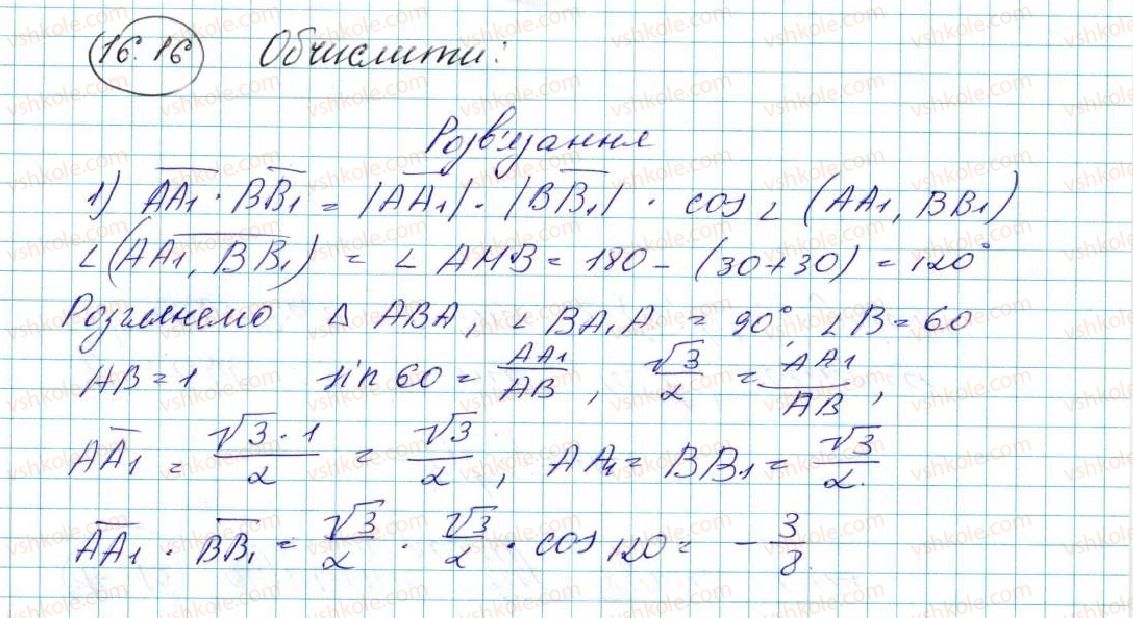 16.16 Обчислити:
Розв'язання
1) AA₁ · BB₁ = |AA₁| · |BB₁| · cos ∠ (AA₁, BB₁)
∠(AA₁, BB₁) = ∠ AMB = 180 - (30+30) = 120°
Розглянемо Δ ABA, ∠ BA₁A = 90° ∠B = 60
AB = 1 sin 60 = AA₁/AB, √3/2 = AA₁/AB,
AA₁ = √3·1/2 = √3/2, AA₁ = BB₁ = √3/2.
AA₁ · BB₁ = √3/2 · √3/2 · cos 120 = - 3/8